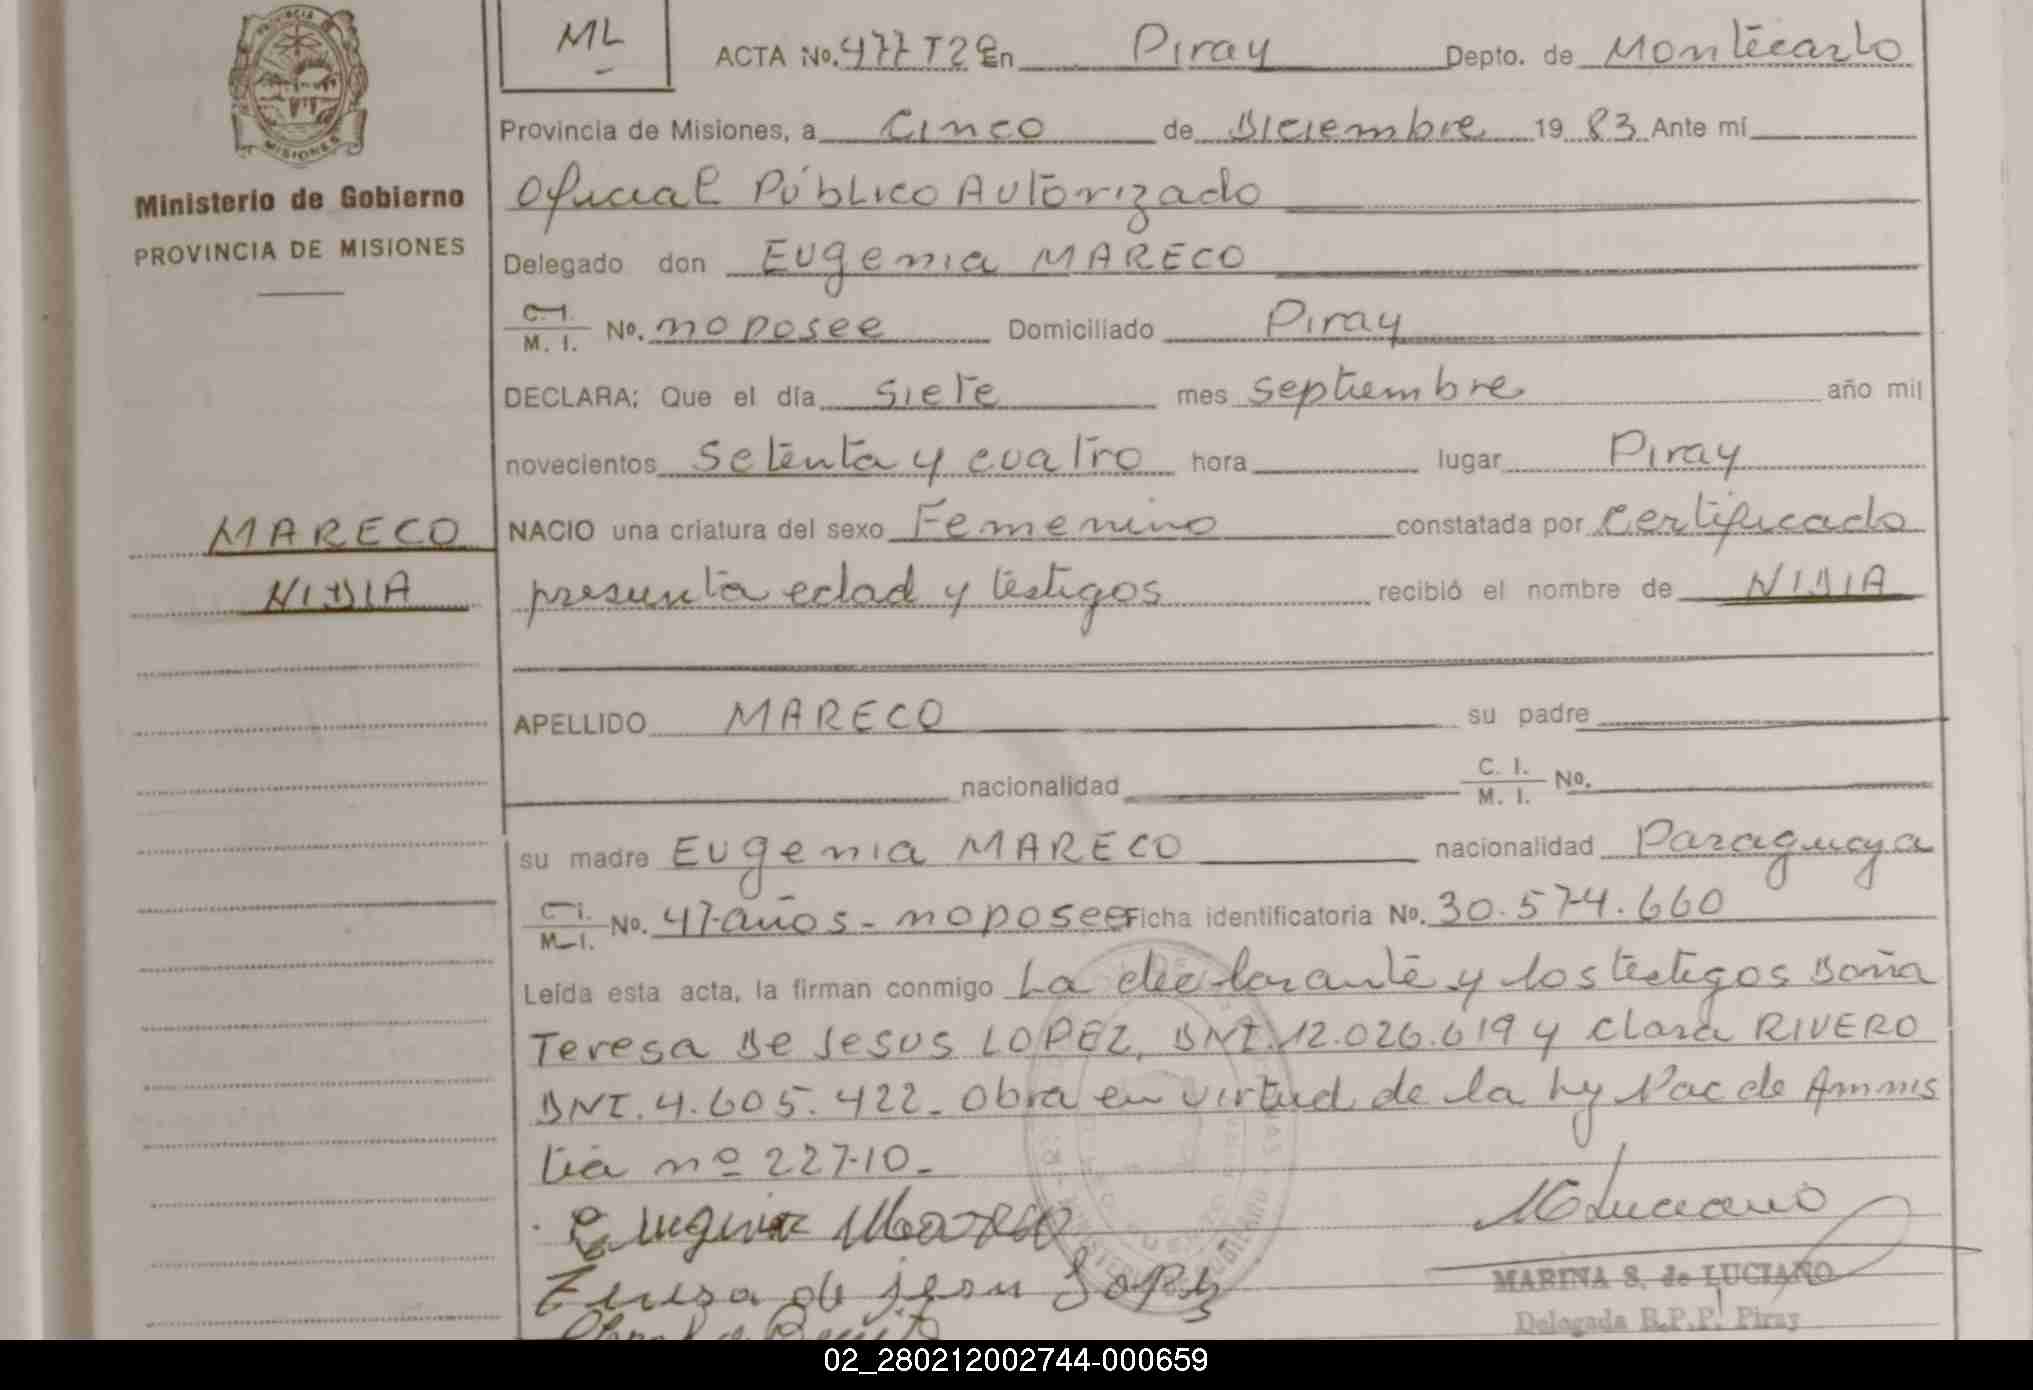 PROVINCIA DE MISIONES
ML
ACTA No. 477 T2º En Piray Depto. de Montecarlo
Provincia de Misiones, a Cinco de Diciembre 1983 Ante mí
Oficial Público Autorizado
Ministerio de Gobierno
PROVINCIA DE MISIONES
Delegado don Eugenia MARECO
C.I. M.I. No. no posee Domiciliado Piray
DECLARA: Que el día siete mes septiembre año mil
novecientos setenta y cuatro hora lugar Piray
MARECO
NIDIA
NACIO una criatura del sexo Femenino constatada por certificado
presunta edad y testigos recibió el nombre de NIDIA
APELLIDO MARECO su padre
nacionalidad C. I. M. I. No.
su madre Eugenia MARECO nacionalidad Paraguaya
C.I. M.I. No. 47 años - no posee Ficha identificatoria No. 30.574.660
Leída esta acta, la firman conmigo La declarante y los testigos Doña
Teresa De Jesus LOPEZ, DNI. 12.026.619 y Clara RIVERO
DNI. 4.605.422. Obra en virtud de la ley Nac de Amnis
tia nº 22710.
Eugenia Mareco
Teresa de jesu Lopez
MLuciano
MARINA S. de LUCIANO
Delegada R.P.P. Piray
02_280212002744-000659